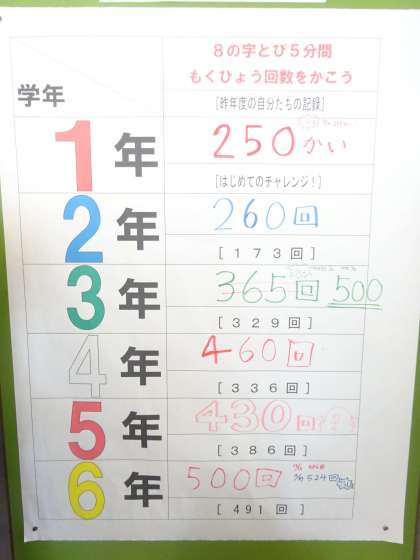 8の字とび5分間
もくひょう回数をかこう
学年
[昨年度の自分たちの記録]
1年
250かい
[はじめてのチャレンジ!]
2年
260回
[173回]
3年
365回 500
[329回]
4年
460回
[336回]
5年
430回
[386回]
6年
500回
524回
[491回]